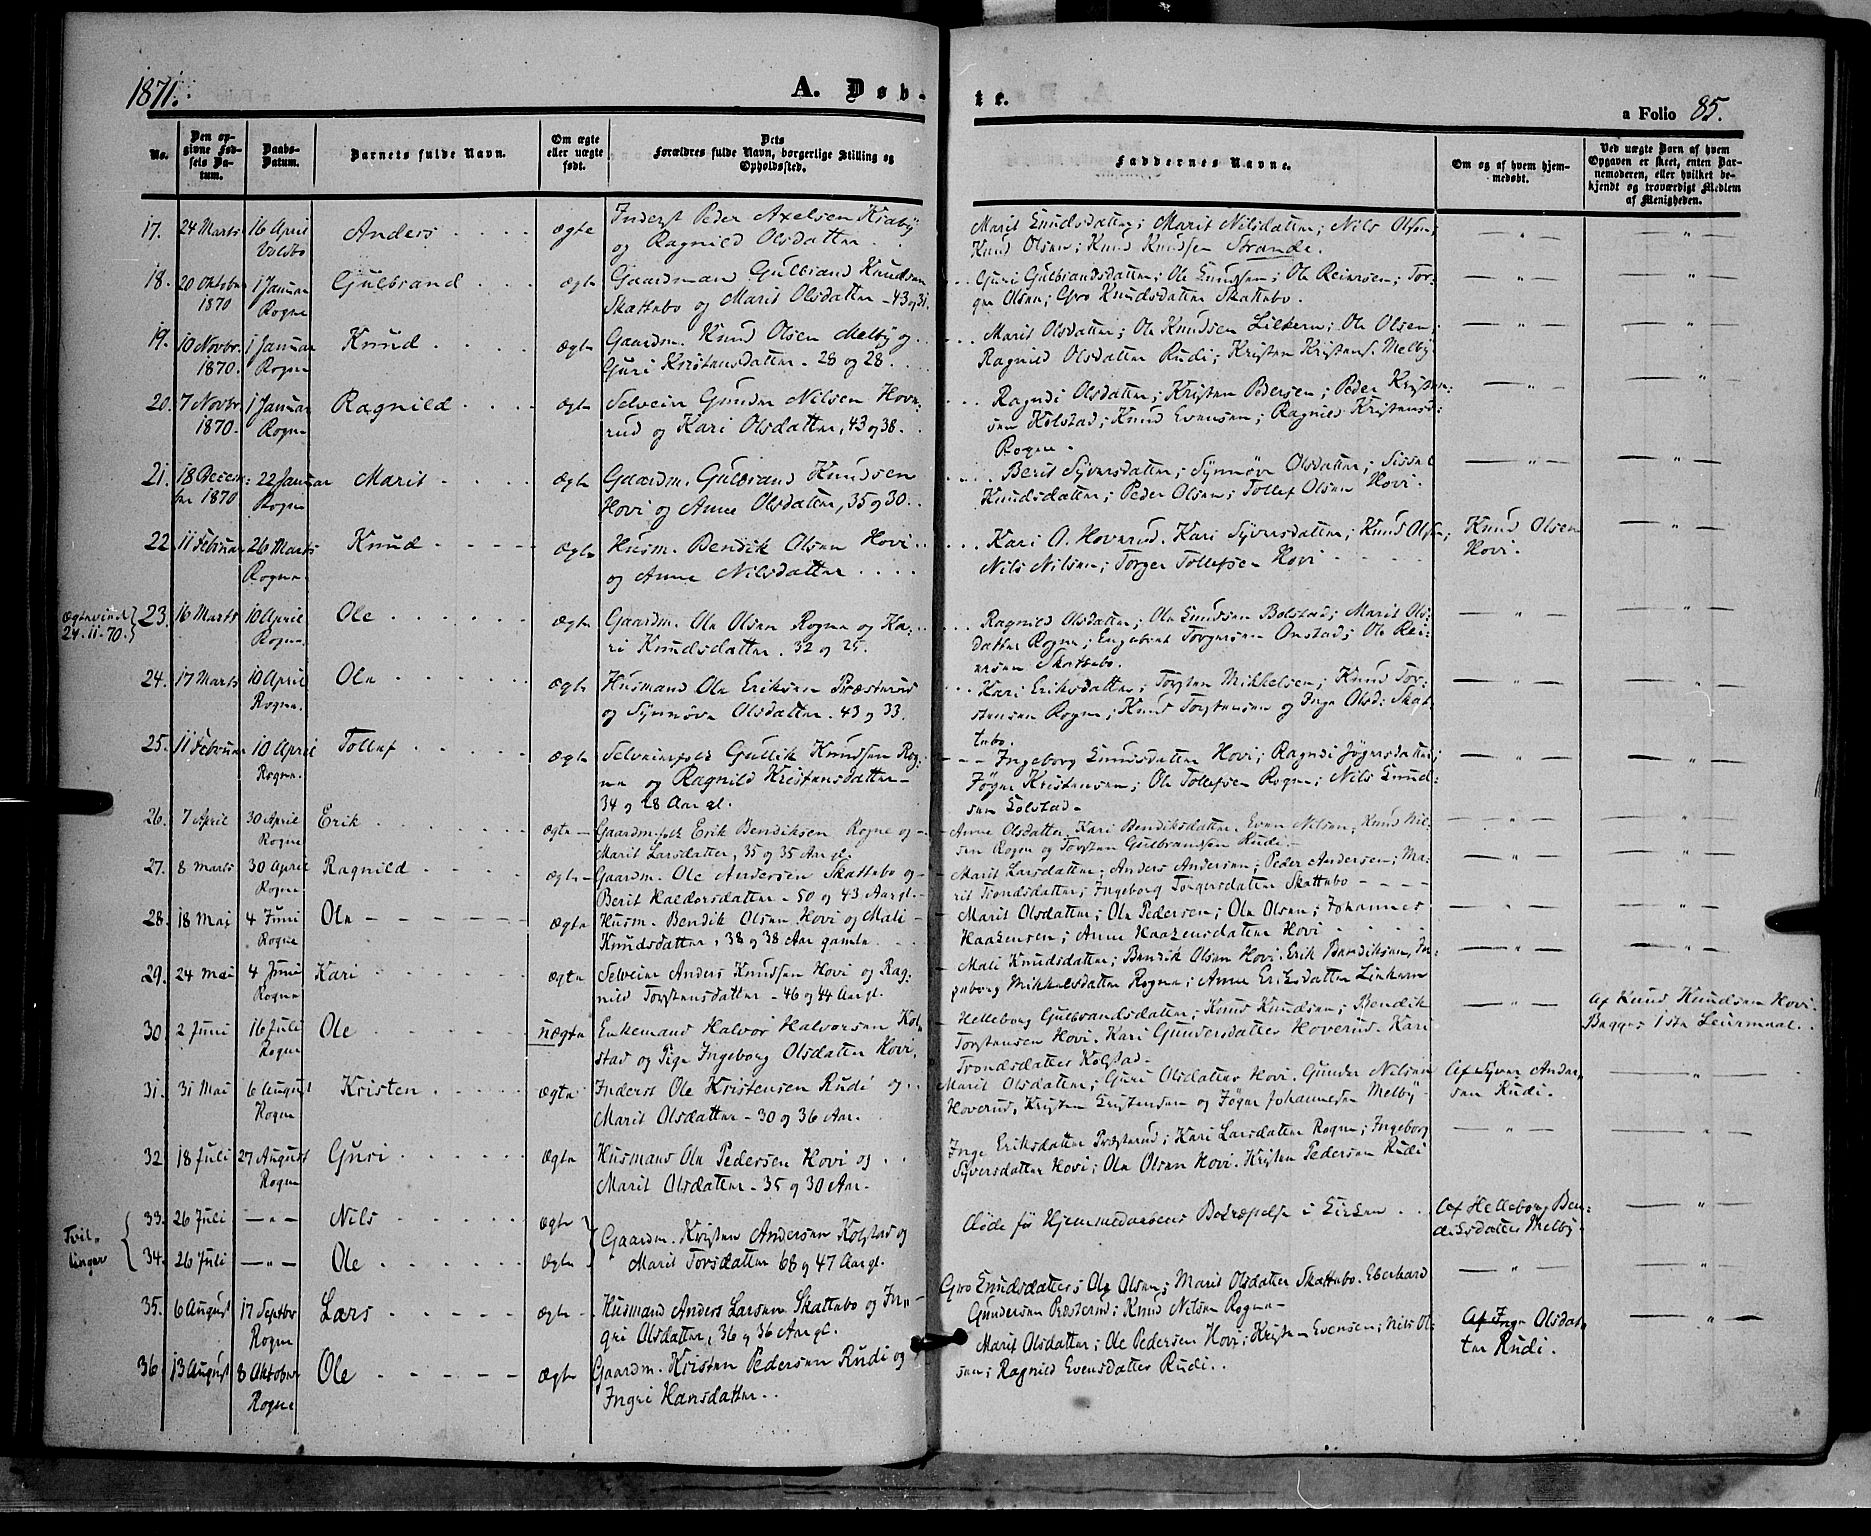 1871.
A. Døb-
te.
a Folio 85.
No.
Den op-
givne Fød-
sels Da-
tum.
Daabs-
Datum.
Barnets fulde Navn.
Om ægte
eller uægte
født.
Dets
Forældres fulde Navn, borgerlige Stilling og
Opholdssted.
Faddernes Navne.
Om og af hvem hjem-
medøbt.
Ved uægte Børn af hvem
Opgaven er skeet, enten Bar-
nemoderen, eller hvilket be-
kjendt og troværdigt Medlem
af Menigheden.
17. 24 Marts 16 April Anders ægte Inderst Peder Axelsen Kraby
og Ragnild Olsdatter
Marit Knudsdatter; Marit Nilsdatter; Nils Olsen;
Knud Olsen; Knud Knudsen Strande.
18. 20 Oktober 1 Januar Gulbrand ægte Gaardmand Gulbrand Knudsen
1870 Rogne Skattebo og Marit Olsdatter - 43 og 31.
Guri Gulbrandsdatter; Ole Knudsen; Ole Reiersen; Tor-
ger Olsen; Gro Knudsdatter Skattebo.
19. 10 Novbr. 1 Januar Knud ægte Gaardm. Knud Olsen Melby og
1870. Rogne Guri Kristensdatter - 28 og 28.
Marit Olsdatter; Ole Knudsen; Ole Olsen;
Ragnild Olsdatter Rudi; Kristen Kristens. Melby
20. 7 Novbr 1 Januar Ragnild ægte Selveier Gunder Nilsen Hove-
1870. Rogne rud og Kari Olsdatter, 43 og 38.
Ragndi Olsdatter; Kristen Pedersen; Peder Kristen-
sen Kolstad; Knud Evensen; Ragnild Kristensd:
Rogne.
21. 18 Decem- 22 Januar Marit ægte Gaardm. Gulbrand Knudsen
ber 1870 Rogne Hovi og Anne Olsdatter, 35 og 30.
Berit Syversdatter; Synnøve Olsdatter; Sissel
Knudsdatter; Peder Olsen; Tollef Olsen Hovi.
22. 11 Februar 26 Marts Knud ægte Husm. Bendik Olsen Hovi
Rogne. og Anne Nilsdatter
Kari O. Hoverud. Kari Syversdatter; Knud Olsen;
Nils Nilsen; Torger Tollefsen Hovi
Knud Olsen
Hovi.
Ægteviede
24-11-70.
23. 16 Marts 10 April Ole ægte Gaardm. Ole Olsen Rogne og Ka-
Rogne. ri Knudsdatter. 32 og 25.
Ragnild Olsdatter; Ole Knudsen Bolstad; Marit Ols-
datter Rogne; Engebret Torgersen Onstad; Ole Rei-
ersen Skattebo.
24. 17 Marts 10 April Ole ægte Husmand Ole Eriksen Præsterud
Rogne. og Synnøve Olsdatter. 43 og 33.
Kari Eriksdatter; Torsten Mikkelsen; Knud Tor-
stensen Rogne; Knud Torstensen og Inge Olsd: Skat-
tebo.
25. 11 Februar 10 April Tollef ægte Selveierfolk Gullik Knudsen Rog-
Rogne. ne og Ragnild Kristensdatter
34 og 28 Aar gl.
Ingeborg Knudsdatter Hovi; Ragndi Jøgersdatter;
Jøger Kristensen; Ole Tollefsen Rogne; Nils Knud-
sen Kolstad.
26. 7 April 30 April Erik ægte Gaardm.folk Erik Bendiksen Rogne og
Rogne Marit Larsdatter, 35 og 35 Aar gl.
Anne Olsdatter. Kari Bendiksdatter. Even Nilsen; Knud Nil-
sen Rogne og Torsten Gulbrandsen Rudi.
27. 8 Marts 30 April Ragnild ægte Gaardm. Ole Andersen Skattebo og
Rogne Berit Haldorsdatter - 50 og 43 Aar gl.
Marit Larsdatter; Anders Andersen; Peder Andersen; Ma-
rit Trondsdatter; Ingeborg Torgersdatter Skattebo
28. 18 Mai 4 Juni Ole ægte Husm. Bendik Olsen Hovi og Mali
Rogne Knudsdatter, 38 og 38 Aar gamle.
Marit Olsdatter; Ole Pedersen; Ole Olsen; Johannes
Haakensen; Anne Haakensdatter Hovi
29. 24 Mai 4 Juni Kari ægte Selveier Anders Knudsen Hovi og Rag-
Rogne nild Torstensdatter - 46 og 44 Aar gl.
Mali Knudsdatter; Bendik Olsen Hovi. Erik Bendiksen, In-
geborg Mikkelsdatter Rogne; Anne Eriksdatter
30. 2 Juni 16 Juli Ole uægte Enkemand Halvor Halvorsen Kol-
Rogne stad og Pige Ingeborg Olsdatter Hovi,
Helleborg Gulbrandsdatter; Knud Knudsen; Bendik
Torstensen Hovi. Kari Gundersdatter Hoverud. Kari
Trondsdatter Kolstad.
Af Knud Knudsen Hovi.
Begges 1ste Leiermaal.
31. 31 Mai 6 August Kristen ægte Inderst Ole Kristensen Rudi og
Rogne Marit Olsdatter - 30 og 36 Aar.
Marit Olsdatter; Guri Olsdatter Hovi. Gunder Nilsen
Hoverud, Kristen Kristensen og Jøger Johannesen Melby
Af Syver Ander-
sen Rudi.
32. 18 Juli 27 August Guri ægte Husmand Ole Pedersen Hovi og
Rogne Marit Olsdatter - 35 og 30 Aar.
Inge Eriksdatter Præsterud; Kari Larsdatter Rogne; Ingeborg
Syversdatter Hovi; Ole Olsen Hovi. Kristen Pedersen Rudi
Tvil-
linger
33. 26 Juli Nils ægte
34. 26 Juli Ole ægte
Gaardm. Kristen Andersen Kolstad og
Marit Torsdatter 68 og 47 Aar gl.
døde før Hjemmedaabens Bekræftelse i Kirken
Af Helleborg Ben-
diksdatter Melby
35. 6 August 17 Septbr Lars ægte Husmand Anders Larsen Skattebo og In-
Rogne gri Olsdatter, 36 og 36 Aar gl.
Gro Knudsdatter; Ole Olsen; Marit Olsdatter Skattebo. Eberhard
Gundersen Præsterud; Knud Nilsen Rogne
36. 13 August 8 Oktober Ole ægte Gaardm. Kristen Pedersen Rudi og
Rogne Ingri Hansdatter.
Marit Olsdatter; Ole Pedersen Hovi; Kristen Evensen; Nils Ol-
sen; Ragnild Evensdatter Rudi.
Af Inge Olsdat-
ter Rudi.